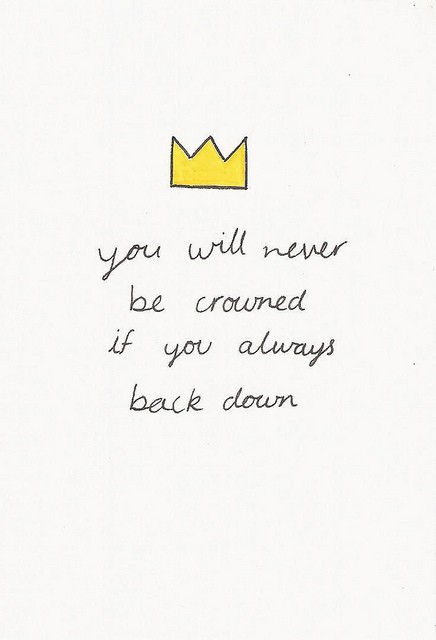 you will never
be crowned
if you always
back down